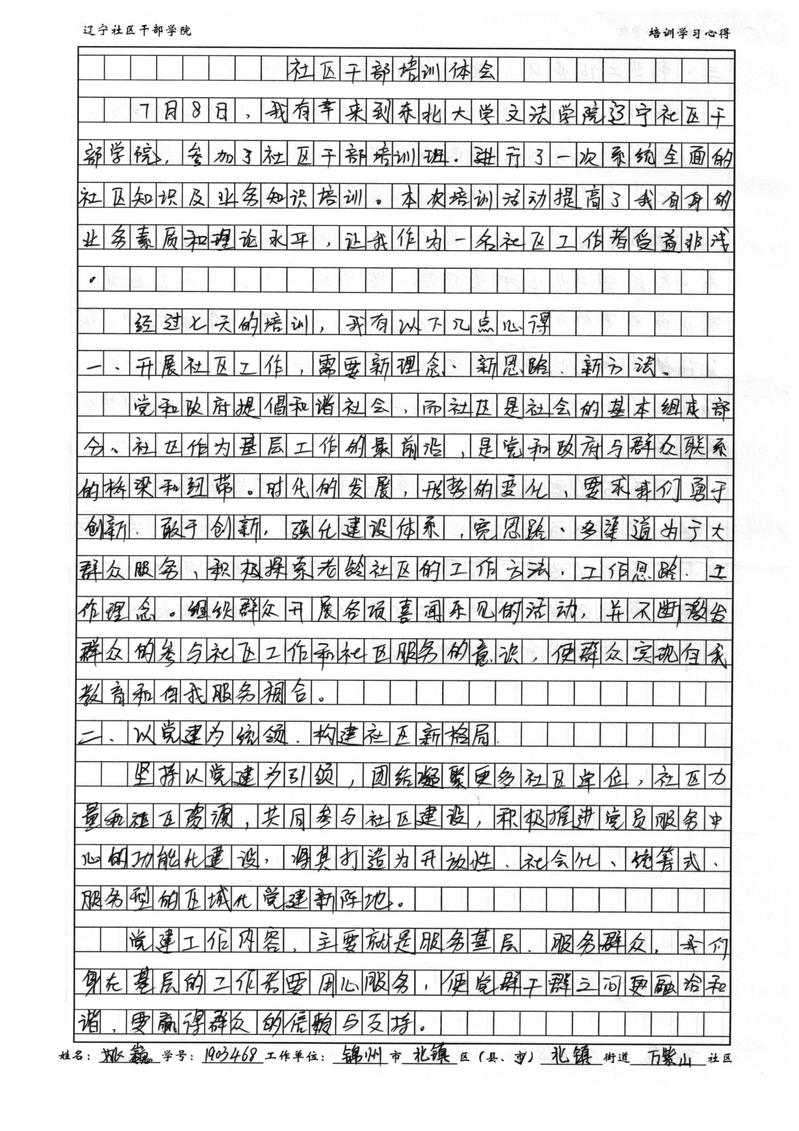 辽宁社区干部学院
培训学习心得
社区干部培训体会
7月8日，我有幸来到东北大学文法学院辽宁社区干
部学院，参加了社区干部培训班。进行了一次系统全面的
社区知识及业务知识培训。本次培训活动提高了我自身的
业务素质和理论水平，让我作为一名社区工作者受益非浅
。
经过七天的培训，我有以下几点心得
一、开展社区工作，需要新理念、新思路、新方法。
党和政府提倡和谐社会，而社区是社会的基本组成部
分、社区作为基层工作的最前沿，是党和政府与群众联系
的桥梁和纽带。时代的发展，形势的变化、要求我们勇于
创新、敢于创新，强化建设体系，宽思路、多渠道为广大
群众服务，积极探索老龄社区的工作方法，工作思路、工
作理念。组织群众开展各项喜闻乐见的活动，并不断激发
群众的参与社区工作和社区服务的意识，使群众实现自我
教育和自我服务相合。
二、以党建为统领、构建社区新格局
坚持以党建为引领，团结凝聚更多社区单位，社区力
量和社区资源，共同参与社区建设，积极推进党员服务中
心的功能化建设，将其打造为开放性、社会化、统筹式、
服务型的区域化党建新阵地。
党建工作内容，主要就是服务基层、服务群众，我们
身在基层的工作者要用心服务，使党群干群之间更融洽和
谐，要赢得群众的信赖与支持。
姓名： 学号：1903468 工作单位：锦州市北镇区（县、市）北镇街道万紫山社区